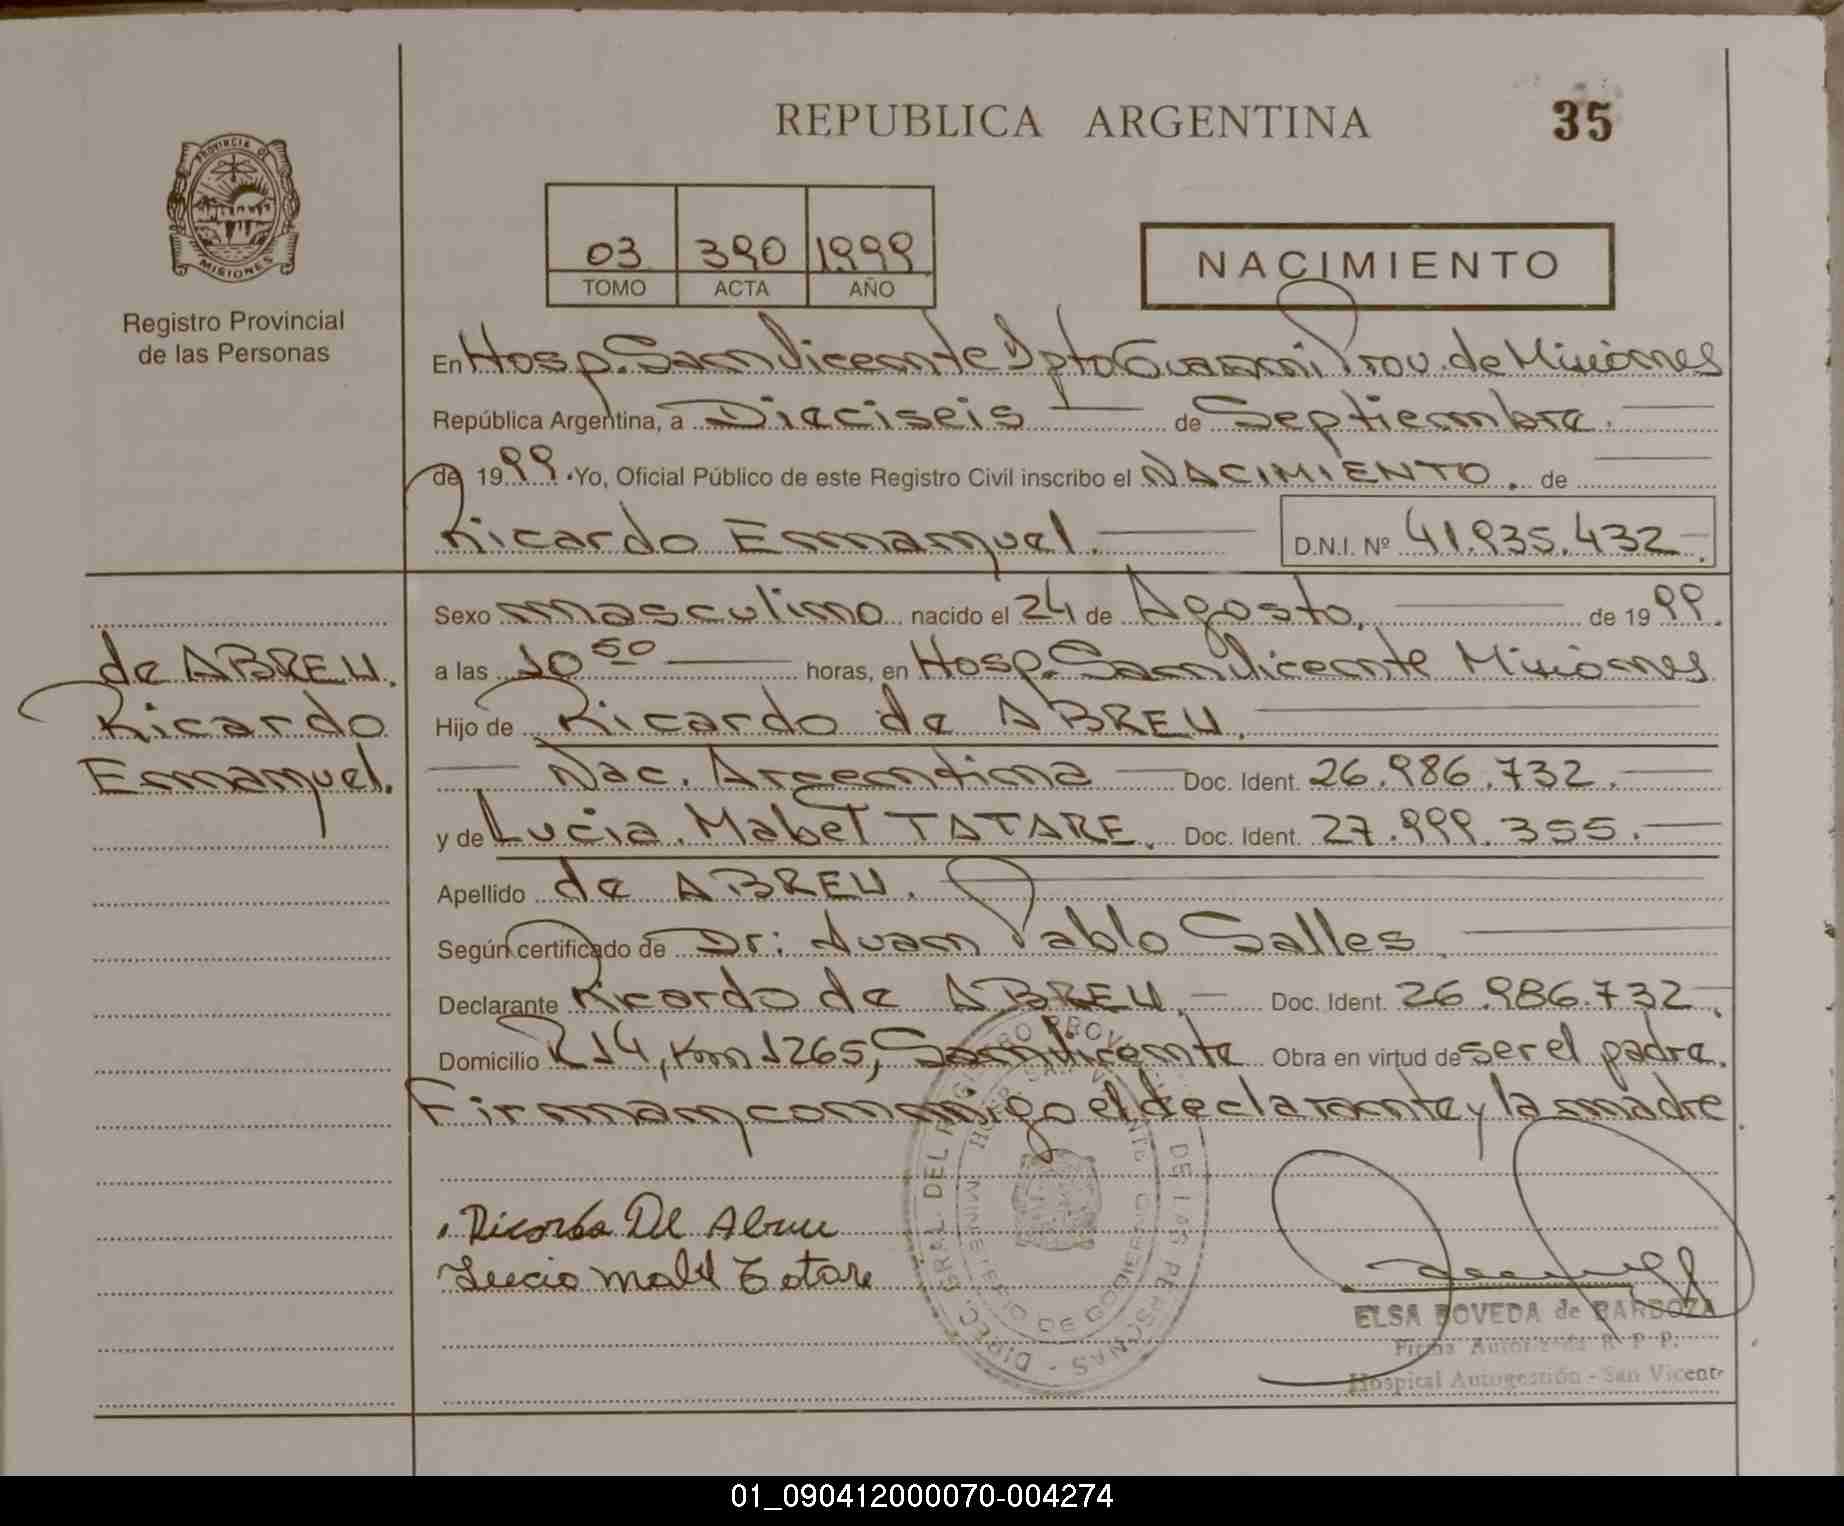 REPUBLICA ARGENTINA
35
PROVINCIA DE
MISIONES
Registro Provincial
de las Personas
03 390 1999
TOMO ACTA AÑO
NACIMIENTO
En Hosp. San Vicente Dpto Guaraní Prov. de Misiones
República Argentina, a Dieciseis de Septiembre.
de 1999. Yo, Oficial Público de este Registro Civil inscribo el NACIMIENTO. de
Ricardo Emmanuel. D.N.I. Nº 41.935.432.
Sexo masculino nacido el 24 de Agosto, de 1999.
a las 10 50 horas, en Hosp. San Vicente Misiones
Hijo de Ricardo de ABREU.
Nac. Argentina Doc. Ident. 26.986.732.
y de Lucia Mabel TATARE. Doc. Ident. 27.999.355.
Apellido de ABREU.
Según certificado de Dr: Juan Pablo Salles
Declarante Ricardo de ABREU. Doc. Ident. 26.986.732.
Domicilio R 14, Km 1265, San Vicente Obra en virtud de ser el padre.
Firman conmigo el declarante y la madre.
de ABREU.
Ricardo
Emmanuel.
Ricardo De Abreu
Lucia Mabel Tatare
DIREC. GRAL. DEL REGISTRO PROV. DE LAS PERSONAS
HOSP. SAN VICENTE
MINISTERIO DE GOBIERNO
ELSA BOVEDA de BARBOZA
Firma Autorizada R. P. P.
Hospital Autogestión - San Vicente
01_090412000070-004274